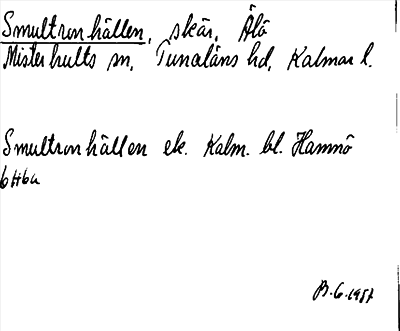 Smultronhällen, skär, Älö
Misterhults sn, Tunaläns hd, Kalmar l.
Smultronhällen ek. Kalm. bl. Hamnö
6H6a
B.G. 1957